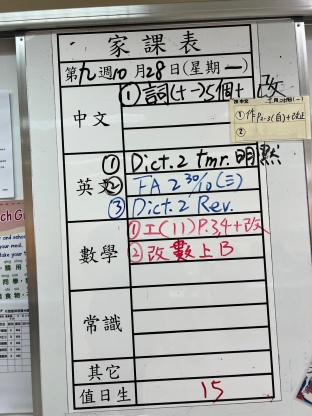 家課表
第九週10月28日(星期一)
中文
①詞(十→5個+改
①作P2-3(自)+改正
英文
①Dict.2 tmr.明默
②FA 2 30/10(三)
③Dict.2 Rev.
數學
①工(11)P.3,4+改
②改數上B
常識
其它
值日生
15